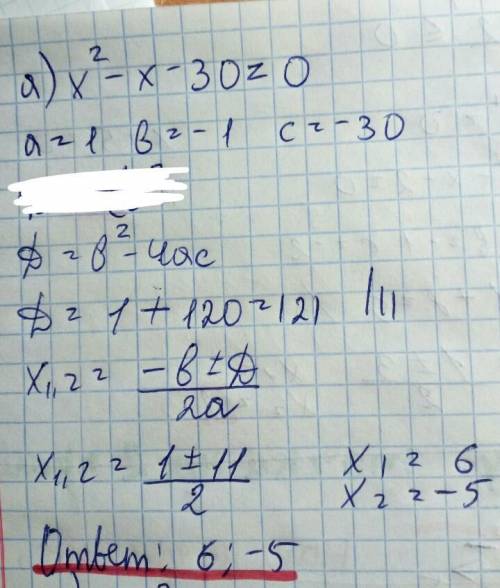 а) x² - x - 30 = 0
a = 1 в = -1 c = -30
Д = в² - 4ac
Д = 1 + 120 = 121
x₁,₂ = (-в ± Д) / 2a
x₁,₂ = (1 ± 11) / 2 x₁ = 6
x₂ = -5
Ответ: 6; -5